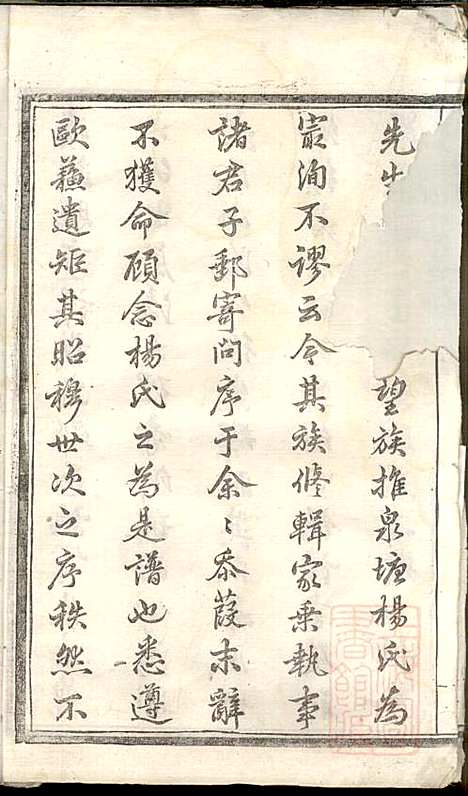 先生望族推泉塘楊氏為
最洵不謬云今其族修輯家乗執事
諸君子郵寄问序于余〻忝葭末辭
不獲命顾念楊氏之為是譜也悉遵
歐蘓遺矩其昭穆世次之序秩然不